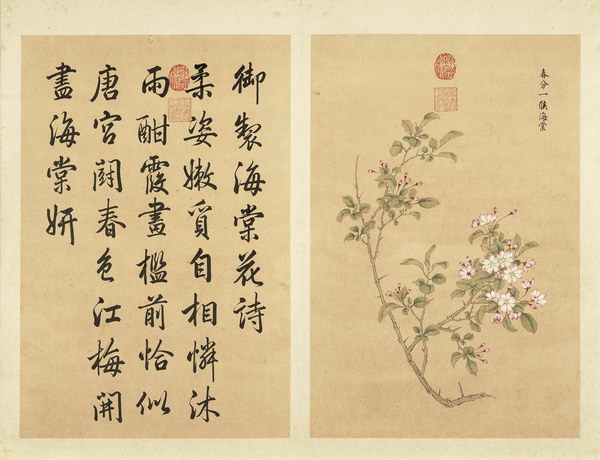 春分一候海棠
御製海棠花詩
柔姿嫩質自相憐沐
雨酣霞畫檻前恰似
唐宮鬪春色江梅開
盡海棠妍